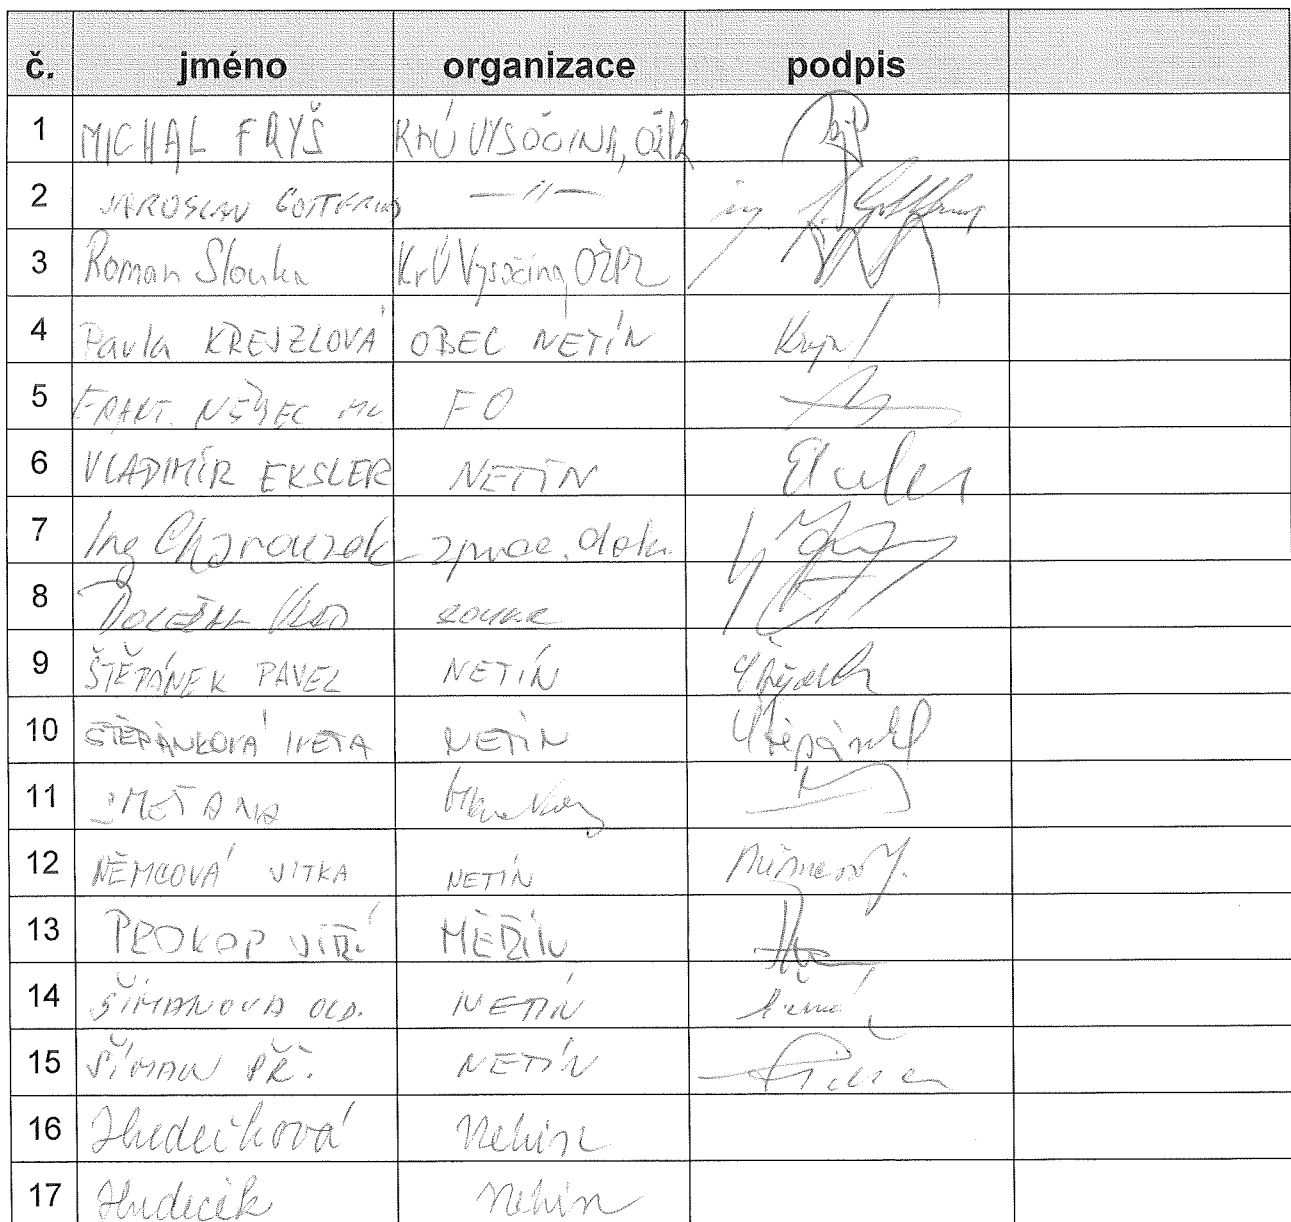 č. jméno organizace podpis
1 MICHAL FRYŠ KRÚ VYSOČINA, OŽPZ
2 JAROSLAV — 〃 —
3 Roman Slouka KrÚ Vysočina OŽPZ
4 Pavla KREJZLOVÁ OBEC NETÍN
5 FRANT. NĚMEC ML. FO
6 VLADIMÍR EKSLER NETÍN Eksler
7 Ing Charouzek zprac. dok.
8 DOLEŽAL VLAD
9 ŠTĚPÁNEK PAVEL NETÍN
10 ŠTĚPÁNKOVÁ IVETA NETÍN
11 SMETANA
12 NĚMCOVÁ JITKA NETÍN
13 PROKOP JIŘÍ MĚŘÍN
14 ŠIMANOVA OLD. NETÍN
15 ŠÍMAN PŘ. NETÍN
16 Hudečková Netín
17 Hudeček Netín